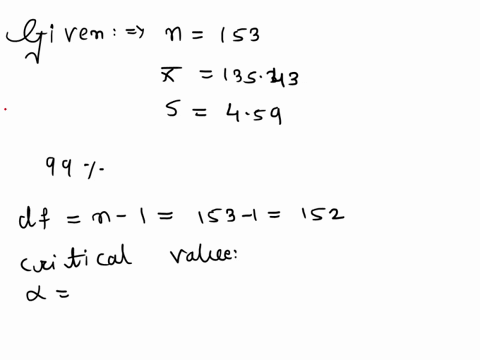 Given: => n = 153
x̄ = 135.343
S = 4.59
99 %
df = n - 1 = 153-1 = 152
critical value:
α =